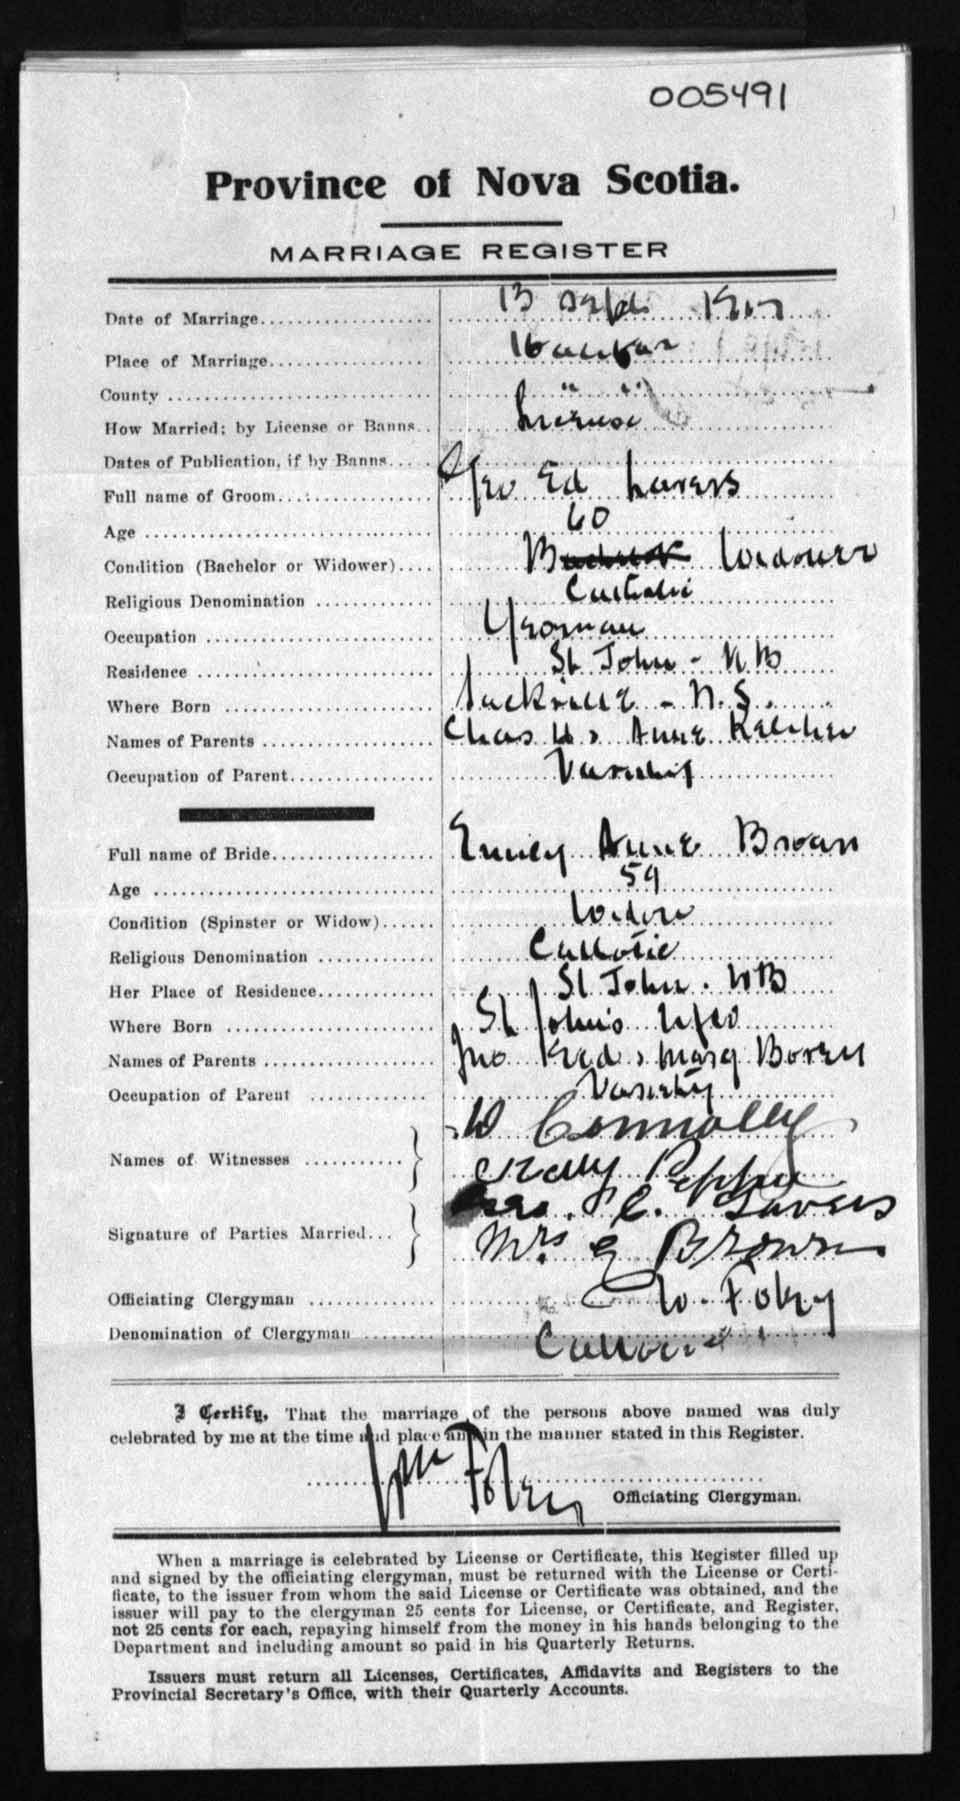 005491
Province of Nova Scotia.
MARRIAGE REGISTER
Date of Marriage 13 Sept
Place of Marriage Halifax
County " "
How Married; by License or Banns License
Dates of Publication, if by Banns
Full name of Groom Geo Ed Lavers
Age 60
Condition (Bachelor or Widower) Widower
Religious Denomination Catholic
Occupation Yeoman
Residence St John - NB
Where Born Sackville - N.S.
Names of Parents Chas W & Anne Kelliher
Occupation of Parent
Full name of Bride Emily Anne Brown
Age 59
Condition (Spinster or Widow) Widow
Religious Denomination Catholic
Her Place of Residence St John. NB
Where Born St John's Nfld
Names of Parents Jno & Marg
Occupation of Parent
Names of Witnesses W Connolly
Signature of Parties Married Geo. E. Lavers
Mrs E Brown
Officiating Clergyman W. Foley
Denomination of Clergyman Catholic
I Certify, That the marriage of the persons above named was duly
celebrated by me at the time and place and in the manner stated in this Register.
Wm Foley
Officiating Clergyman.
When a marriage is celebrated by License or Certificate, this Register filled up
and signed by the officiating clergyman, must be returned with the License or Certi-
ficate, to the issuer from whom the said License or Certificate was obtained, and the
issuer will pay to the clergyman 25 cents for License, or Certificate, and Register,
not 25 cents for each, repaying himself from the money in his hands belonging to the
Department and including amount so paid in his Quarterly Returns.
Issuers must return all Licenses, Certificates, Affidavits and Registers to the
Provincial Secretary's Office, with their Quarterly Accounts.